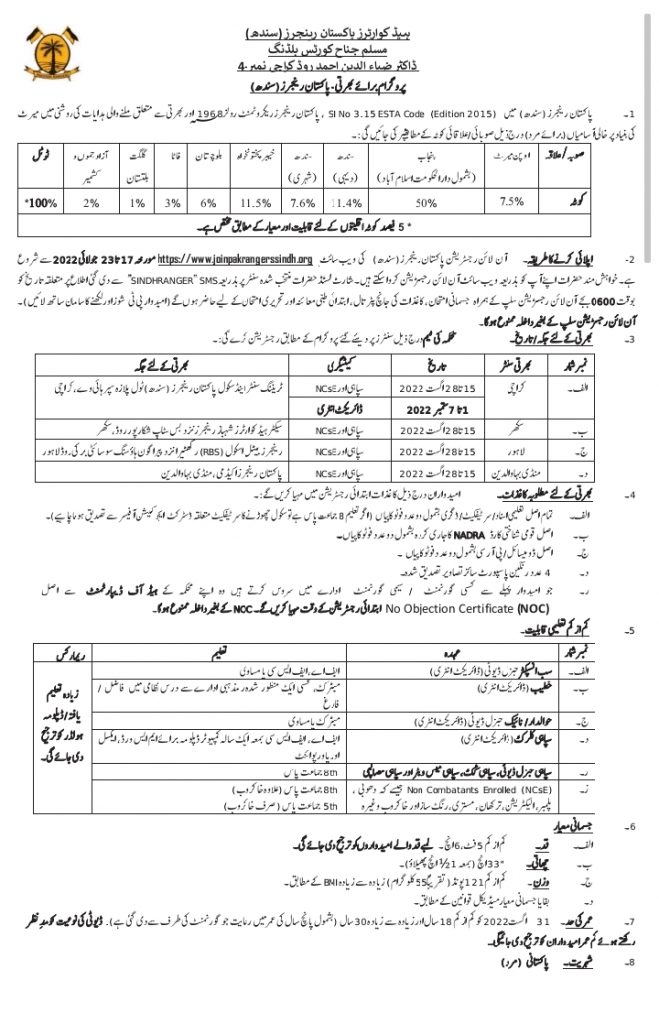 ہیڈ کوارٹرز پاکستان رینجرز (سندھ)
مسلم جناح کورٹس بلڈنگ
ڈاکٹر ضیاء الدین احمد روڈ کراچی نمبر-4
پروگرام برائے بھرتی - پاکستان رینجرز (سندھ)
1۔ پاکستان رینجرز (سندھ) میں SI No 3.15 ESTA Code (Edition 2015) ، پاکستان رینجرز ریکروٹمنٹ رولز 1968 اور بھرتی سے متعلق ملنے والی ہدایات کی روشنی میں میرٹ
کی بنیاد پر خالی آسامیاں (برائے مرد) درج ذیل صوبائی/علاقائی کوٹہ کے مطابق پر کی جائیں گی:۔
صوبہ/علاقہ اوپن میرٹ پنجاب (بشمول دارالحکومت اسلام آباد) سندھ (دیہی) سندھ (شہری) خیبر پختونخواہ بلوچستان فاٹا گلگت بلتستان آزاد جموں و کشمیر ٹوٹل
کوٹہ 7.5% 50% 11.4% 7.6% 11.5% 6% 3% 1% 2% 100%*
* 5 فیصد کوٹہ اقلیتوں کے لئے قابلیت اور معیار کے مطابق مختص ہے۔
2۔ اپلائی کرنے کا طریقہ۔ آن لائن رجسٹریشن پاکستان رینجرز (سندھ) کی ویب سائٹ https://www.joinpakrangerssindh.org مورخہ 17 تا 23 جولائی 2022 سے شروع
ہے۔ خواہش مند حضرات اپنے آپ کو بذریعہ ویب سائٹ آن لائن رجسٹریشن کروا سکتے ہیں۔ شارٹ لسٹڈ حضرات منتخب شدہ سنٹر پر بذریعہ "SINDHRANGER" SMS سے دی گئی اطلاع پر متعلقہ تاریخ کو
بوقت 0600 بجے آن لائن رجسٹریشن سلپ کے ہمراہ جسمانی امتحان، کاغذات کی جانچ پڑتال، ابتدائی طبی معائنہ اور تحریری امتحان کے لیے حاضر ہوں گے (امیدوار پی ٹی شوز اور لکھنے کا سامان ساتھ لائیں)۔
آن لائن رجسٹریشن سلپ کے بغیر داخلہ ممنوع ہوگا۔
3۔ بھرتی کے لئے جگہ/تاریخ۔ محکمہ کی ٹیم درج ذیل سنٹرز پر دیئے گئے پروگرام کے مطابق رجسٹریشن کرے گی:۔
نمبر شمار بھرتی سنٹر تاریخ کیٹیگری بھرتی کے لئے جگہ
الف۔ کراچی 15 تا 28 اگست 2022 سپاہی اور NCsE ٹریننگ سنٹر اینڈ سکول پاکستان رینجرز (سندھ) ٹول پلازہ سپر ہائی وے، کراچی
1 تا 7 ستمبر 2022 ڈائریکٹ انٹری
ب۔ سکھر 15 تا 28 اگست 2022 سپاہی اور NCsE سیکٹر ہیڈ کوارٹرز شہباز رینجرز نزد بس سٹاپ شکارپور روڈ، سکھر
ج۔ لاہور 15 تا 28 اگست 2022 سپاہی اور NCsE رینجرز بیٹل اسکول (RBS) رکھٹیرا نزد پیراگون ہاؤسنگ سوسائٹی برکی روڈ لاہور
د۔ منڈی بہاؤالدین 15 تا 28 اگست 2022 سپاہی اور NCsE پاکستان رینجرز اکیڈمی، منڈی بہاؤالدین
4۔ بھرتی کے لئے مطلوبہ کاغذات۔ امیدواران درج ذیل کاغذات ابتدائی رجسٹریشن میں مہیا کریں گے:۔
الف۔ تمام اصل تعلیمی اسناد/سرٹیفکیٹ/ڈگری بشمول دو عدد فوٹو کاپیاں (اگر تعلیم 8 جماعت پاس ہے تو سکول چھوڑنے کا سرٹیفکیٹ متعلقہ ڈسٹرکٹ ایجوکیشن آفیسر سے تصدیق ہو ناچاہیے)۔
ب۔ اصل قومی شناختی کارڈ NADRA کا جاری کردہ بشمول دو عدد فوٹو کاپیاں۔
ج۔ اصل ڈومیسائل/پی آر سی بشمول دو عدد فوٹو کاپیاں ۔
د۔ 4 عدد رنگین پاسپورٹ سائز تصاویر تصدیق شدہ۔
ر۔ جو امیدوار پہلے سے کسی گورنمنٹ / سیمی گورنمنٹ ادارے میں سروس کرتے ہیں وہ اپنے محکمہ کے ہیڈ آف ڈیپارٹمنٹ سے اصل
No Objection Certificate (NOC) ابتدائی رجسٹریشن کے وقت مہیا کریں گے۔ NOC کے بغیر داخلہ ممنوع ہوگا۔
5۔ کم از کم تعلیمی قابلیت۔
نمبر شمار عہدہ تعلیم ریمارکس
الف۔ سب انسپکٹر جنرل ڈیوٹی (ڈائریکٹ انٹری) ایف اے، ایف ایس سی یا مساوی زیادہ تعلیم یافتہ/ڈپلومہ ہولڈر کو ترجیح دی جائے گی۔
ب۔ خطیب (ڈائریکٹ انٹری) میٹرک، کسی ایک منظور شدہ مذہبی ادارے سے درس نظامی میں فاضل / فارغ
ج۔ حوالدار/نائیک جنرل ڈیوٹی (ڈائریکٹ انٹری) میٹرک یا مساوی
د۔ سپاہی کلرک (ڈائریکٹ انٹری) ایف اے، ایف ایس سی بمعہ ایک سالہ کمپیوٹر ڈپلومہ برائے ایم ایس ورڈ، ایکسل اور پاور پوائنٹ
ر۔ سپاہی جنرل ڈیوٹی، سپاہی کک، سپاہی میس ویٹر اور سپاہی مصالچی 8th جماعت پاس
ز۔ Non Combatants Enrolled (NCsE) جیسے کہ دھوبی، پلمبر، الیکٹریشن، ترکھان، مستری، رنگ ساز اور خاکروب وغیرہ 8th جماعت پاس (علاوہ خاکروب)
5th جماعت پاس (صرف خاکروب)
6۔ جسمانی معیار
الف۔ قد۔ کم از کم 5 فٹ، 6 انچ۔ لمبے قد والے امیدواروں کو ترجیح دی جائے گی۔
ب۔ چھاتی۔ "33 انچ (بمعہ 1½ انچ پھیلاؤ)۔
ج۔ وزن۔ کم از کم 121 پونڈ (تقریباً 55 کلوگرام) زیادہ سے زیادہ BMI کے مطابق۔
د۔ بقایا جسمانی معیار میڈیکل قوانین کے مطابق۔
7۔ عمر کی حد۔ 31 اگست 2022 کو کم از کم 18 سال اور زیادہ سے زیادہ 30 سال (بشمول پانچ سال کی عمر میں رعایت جو گورنمنٹ کی طرف سے دی گئی ہے)۔ ڈیوٹی کی نوعیت کو مد نظر
رکھتے ہوئے کم عمر امیدواران کو ترجیح دی جائیگی۔
8۔ شہریت۔ پاکستانی (مرد)